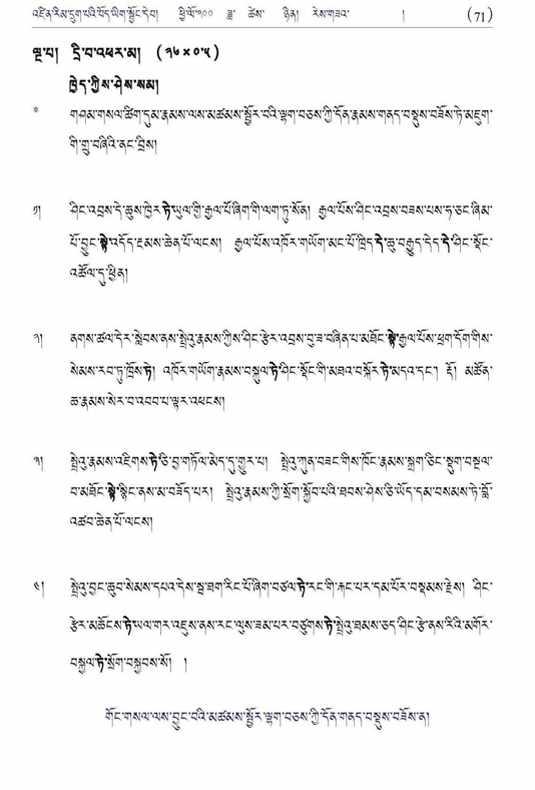 འཛིན་རིམ་དྲུག་པའི་བོད་ཡིག་སྦྱོང་དེབ། ཕྱི་ལོ་༢༠༠ ཟླ་ ཚེས་ ཉིན། རེས་གཟའ་ ། (71)
ལྔ་པ། དྲི་བ་འཕར་མ། (༡༦×༠༥)
ཁྱེད་ཀྱིས་ཤེས་སམ།
* གཤམ་གསལ་ཚིག་དུམ་རྣམས་ལས་མཚམས་སྦྱོར་བའི་ལྷག་བཅས་ཀྱི་དོན་རྣམས་གནད་བསྡུས་བཟོས་ཏེ་མཇུག་
གི་གྲུ་བཞིའི་ནང་བྲིས།
༡། ཤིང་འབྲས་དེ་ཆུས་ཁྱེར་ཏེ་ཡུལ་གྱི་རྒྱལ་པོ་ཞིག་གི་ལག་ཏུ་སོན། རྒྱལ་པོས་ཤིང་འབྲས་བཟས་པས་ཧ་ཅང་ཞིམ་
པོ་བྱུང་སྟེ་འདོད་རྔམས་ཆེན་པོ་ལངས། རྒྱལ་པོས་འཁོར་གཡོག་མང་པོ་ཁྲིད་དེ་ཆུ་བརྒྱུད་དེད་དེ་ཤིང་སྡོང་
འཚོལ་དུ་ཕྱིན།
༢། ནགས་ཚལ་དེར་སླེབས་ནས་སྤྲེའུ་རྣམས་ཀྱིས་ཤིང་རྩེར་འབྲས་བུ་ཟ་བཞིན་པ་མཐོང་སྟེ་རྒྱལ་པོས་ཕྲག་དོག་གིས་
སེམས་རབ་ཏུ་ཁྲོས་ཏེ། འཁོར་གཡོག་རྣམས་བསྐུལ་ཏེ་ཤིང་སྡོང་གི་མཐའ་བསྐོར་ཏེ་མདའ་དང་། རྡོ། མཚོན་
ཆ་རྣམས་སེར་བ་འབབ་པ་ལྟར་འཕངས།
༣། སྤྲེའུ་རྣམས་འཇིགས་ཏེ་ཅི་བྱ་གཏོལ་མེད་དུ་གྱུར་པ། སྤྲེའུ་ཀུན་བཟང་གིས་ཁོང་རྣམས་སྐྲག་ཅིང་སྡུག་བསྔལ་
བ་མཐོང་སྟེ་སྙིང་ནས་མ་བཟོད་པར། སྤྲེའུ་རྣམས་ཀྱི་སྲོག་སྐྱོབ་པའི་ཐབས་ཤེས་ཅི་ཡོད་དམ་བསམས་ཏེ་བློ་
འཚབ་ཆེན་པོ་ལངས།
༤། སྤྲེའུ་བྱང་ཆུབ་སེམས་དཔའ་དེས་སྦ་ཐག་རིང་པོ་ཞིག་བཙལ་ཏེ་རང་གི་རྐང་པར་དམ་པོར་བསྡམས་རྗེས། ཤིང་
རྩེར་མཆོངས་ཏེ་ཡལ་གར་འཇུས་ནས་རང་ལུས་ཟམ་པར་བཙུགས་ཏེ་སྤྲེའུ་ཐམས་ཅད་ཤིང་རྩེ་ནས་རིའི་མགོར་
བསྐྱལ་ཏེ་སྲོག་བསྐྱབས་སོ། །
གོང་གསལ་ལས་བྱུང་བའི་མཚམས་སྦྱོར་ལྷག་བཅས་ཀྱི་དོན་གནད་བསྡུས་བཟོས་ན།